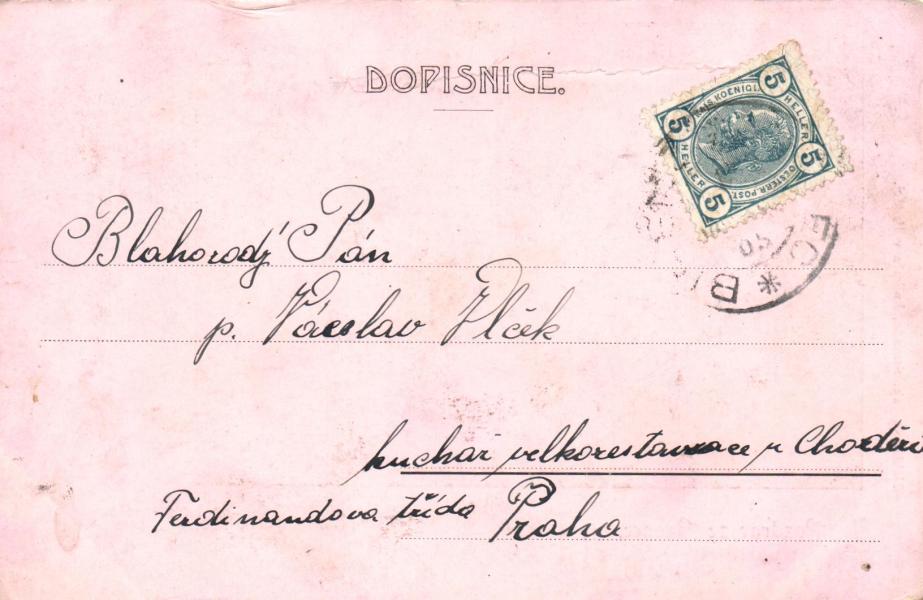 DOPISNICE.
5 5 5 5
KAIS. KOENIGL. OESTERR. POST.
HELLER HELLER
05
Blahorodý Pán
p. Václav Vlček
kuchař velkorestaurace u Choděri
Ferdinandova třída Praha